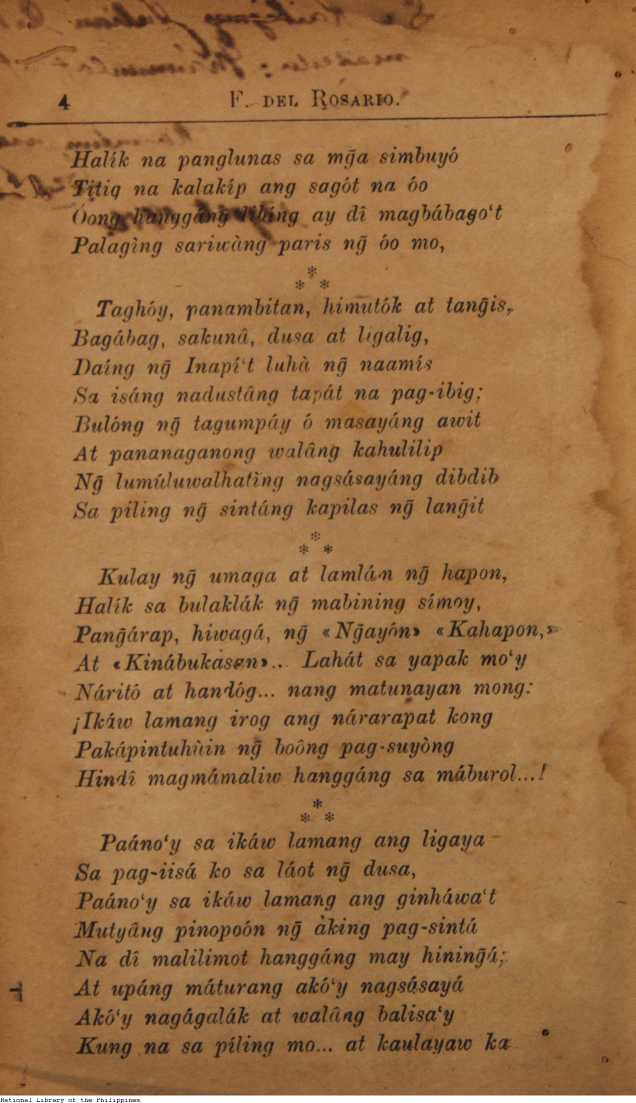 4
F. DEL ROSARIO.
Halík na panglunas sa mg̃a simbuyó
Titig na kalakíp ang sagót na óo
Óong hanggang libing ay dî magbábago‘t
Palagìng sariwàng paris ng̃ óo mo,
*
* *
Taghóy, panambitan, himutók at tang̃is,
Bagábag, sakunâ, dusa at ligalig,
Daíng ng̃ Inapí‘t luhà ng̃ naamís
Sa isáng nadustâng tapát na pag-ibig;
Bulóng ng̃ tagumpáy ó masayáng awit
At pananaganong walâng kahulilip
Ng̃ lumúluwalhatìng nagsásayáng dibdib
Sa píling ng̃ sintáng kapilas ng̃ lang̃it
*
* *
Kulay ng̃ umaga at lamlám ng̃ hapon,
Halík sa bulaklák ng̃ mabining símoy,
Pang̃árap, hiwagá, ng̃ «Ng̃ayón» «Kahapon,»
At «Kinábukasan»... Lahát sa yapak mo‘y
Náritó at handóg... nang matunayan mong:
¡Ikáw lamang irog ang nárarapat kong
Pakápintuhùin ng̃ boông pag-suyòng
Hindî magmámaliw hanggáng sa máburol...!
*
* *
Paáno‘y sa ikáw lamang ang ligaya
Sa pag-iisá ko sa láot ng̃ dusa,
Paáno‘y sa ikáw lamang ang ginháwa‘t
Mutyâng pinopoón ng̃ àking pag-sintá
Na dî malilimot hanggáng may hining̃á;
At upáng máturang akó‘y nagsásayá
Akó‘y nagágalák at walâng balisa‘y
Kung na sa píling mo... at kaulayaw ka
National Library of the Philippines